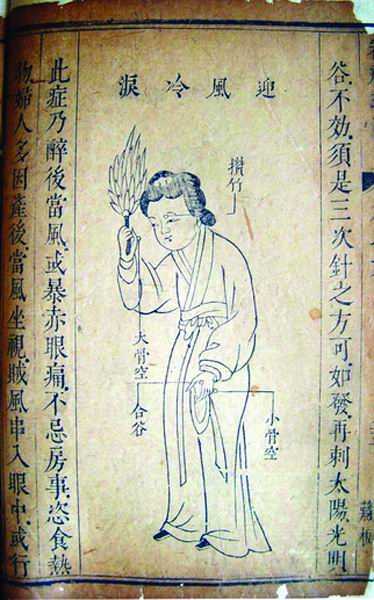 谷、不效、須是三次針之方可、如發、再刺太陽、光明
迎風冷淚
攢竹
大骨空
合谷
小骨空
此症乃醉後當風、或暴赤眼痛、不忌房事、恣食熱
物、婦人多因產後、當風坐視、賊風串入眼中、或行